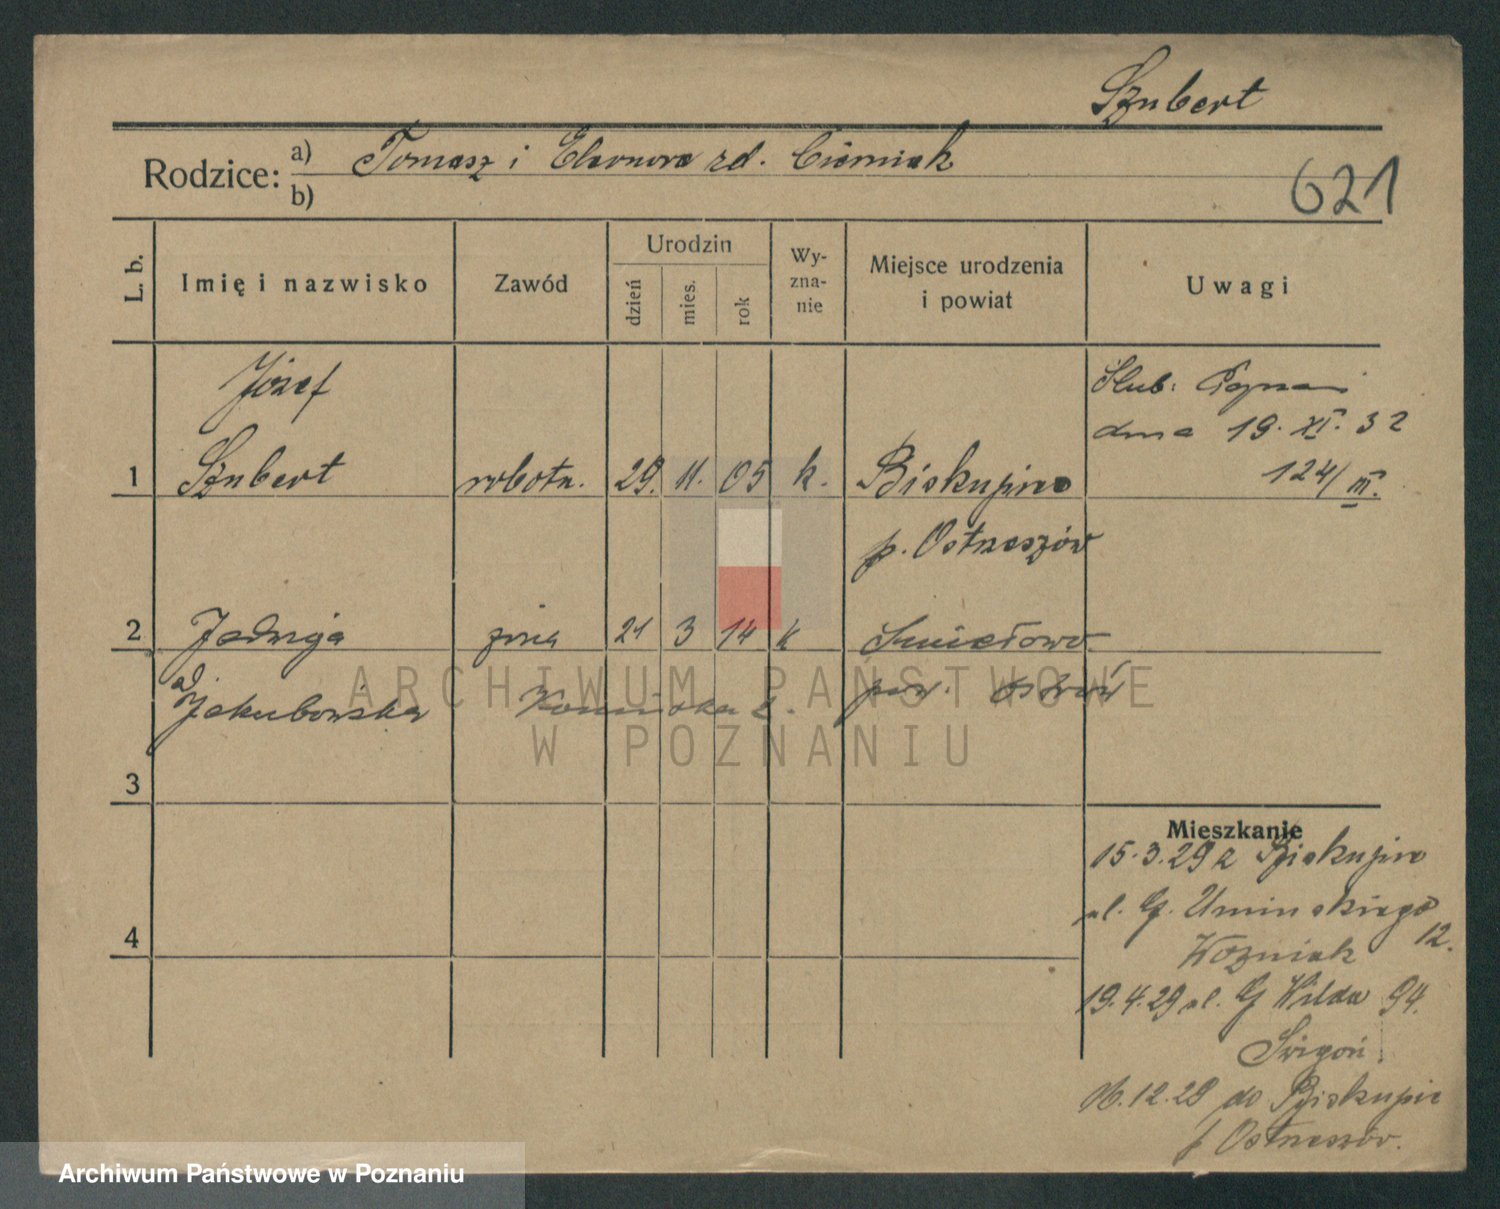 Szubert
Rodzice: a) Tomasz i Eleonora zd. Ciemiak
b)
621
L. b.
Imię i nazwisko
Zawód
Urodzin
dzień
mies.
rok
Wy-
zna-
nie
Miejsce urodzenia
i powiat
Uwagi
Józef
Ślub: Poznań
dnia 19. XI. 32
1 Szubert robotn. 29. 11. 05 k. Biskupice
124/III.
p. Ostrzeszów
2 Jadwiga żona 21 3 14 k
zd.
Jakubowska
pow. Ostrów
3
4
Mieszkanie
15.3.29 z Biskupic
ul. G. Umińskiego
12.
Woźniak
19.4.29 ul. G Wilda 94.
Świgoń
16.12.29 do Biskupic
p Ostrzeszów.
ARCHIWUM PAŃSTWOWE
W POZNANIU
Archiwum Państwowe w Poznaniu